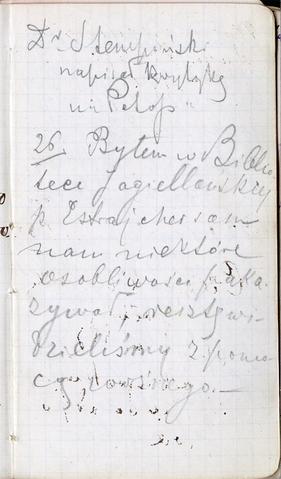 Dr. Stempiński
napisał krytykę
na "Potop"
26. Byłem w Biblio
tece Jagiellońskiej
p. Estrajcher sam
nam niektóre
osobliwości poka
zywał, resztę wi
dzieliśmy z pomo
cą